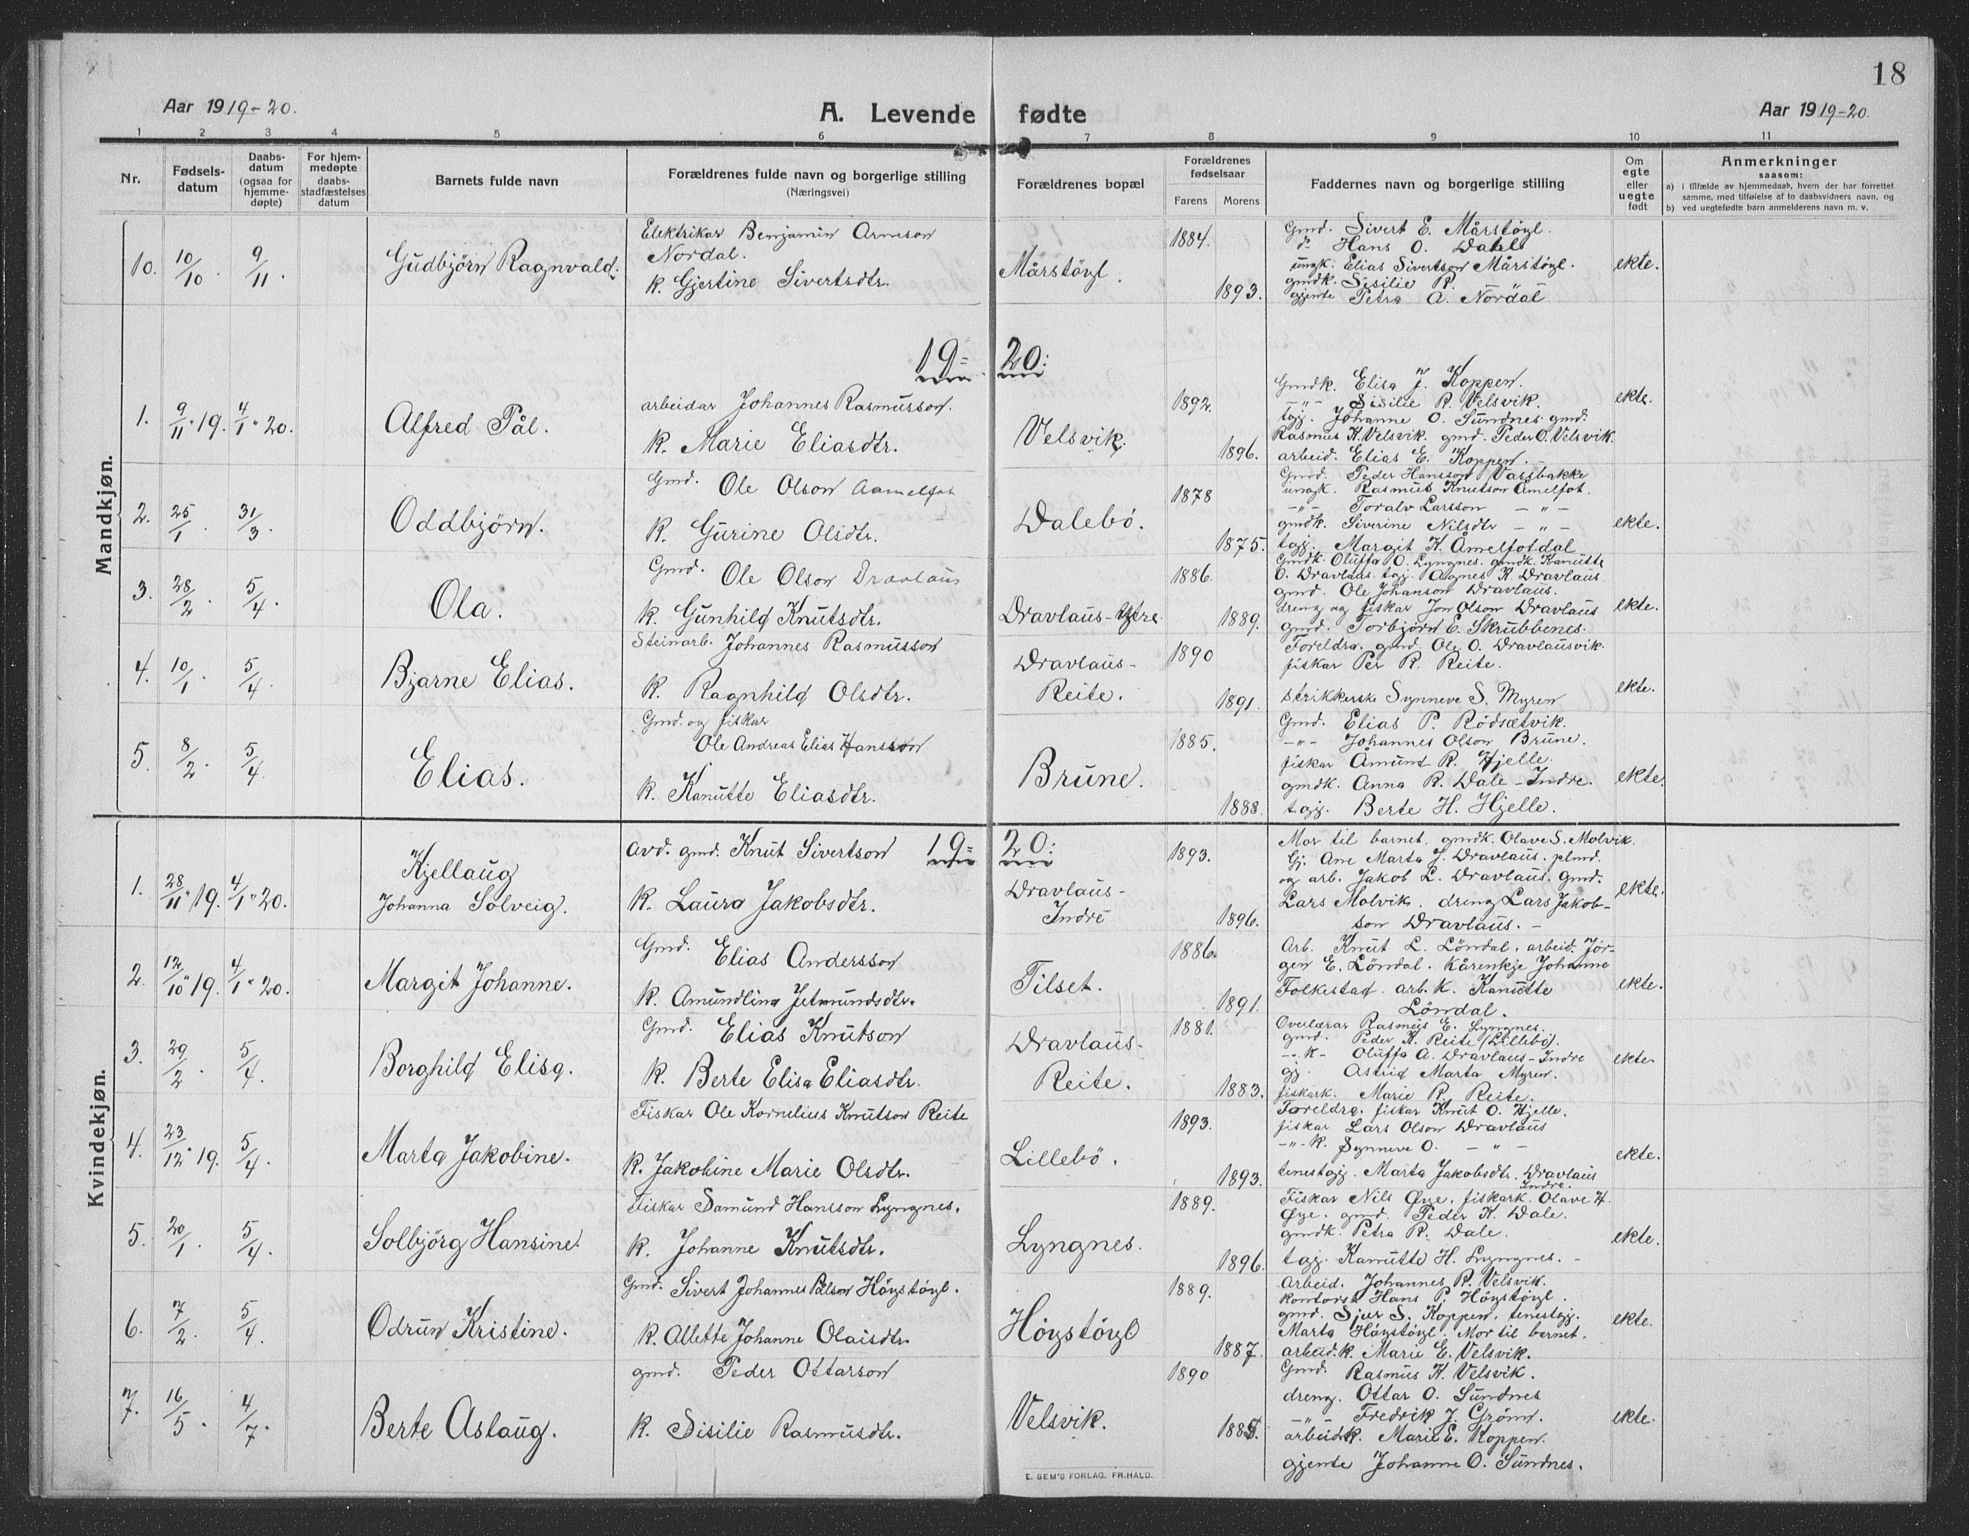 18
Aar 1919-20.
A. Levende fødte
Aar 1919-20.
1 2 3 4 5 6 7 8 9 10 11
Nr.
Fødsels-
datum
Daabs-
datum
(ogsaa for
hjemme-
døpte)
For hjem-
medøpte
daabs-
stadfæstelses
datum
Barnets fulde navn
Forældrenes fulde navn og borgerlige stilling
(Næringsvei)
Forældrenes bopæl
Forældrenes
fødselsaar
Farens Morens
Faddernes navn og borgerlige stilling
Om
egte
eller
uegte
født
Anmerkninger
saasom:
a) i tilfælde av hjemmedaab, hvem der har forrettet
samme, med tilføielse af to daabsvidners navn, og
b) ved uegtefødte barn anmelderens navn m. v.
Mandkjøn.
10. 10/10 9/11. Gudbjørn Ragnvald.
Elektrikar Benjamin Arneson
Nordal.
k. Gjertine Sivertsdtr.
Mårstöyl.
1884.
1893.
Gmd. Sivert E. Mårstöyl.
d. Hans O. Dahl
ungk. Elias Sivertson Mårstöyl.
gmdk. Sisilie R.
gjente Petra A. Nordal
ekte.
19=20:
1. 9/11 19. 4/1 20. Alfred Pål.
arbeidar Johannes Rasmusson.
k. Marie Eliasdtr.
Velsvik.
1892.
1896.
Gmdk. Elisa J. Koppen.
-"- Sisilie R. Velsvik.
tgj. Johanne O. Sundnes gmd.
Rasmus K. Velsvik. gmd. Peder O. Velsvik.
arbeid. Elias E. Koppen.
ekte.
2. 25/1. 31/3 Oddbjörn.
Gmd. Ole Olson Aamelfot
k. Gurine Olsdtr.
Dalebö.
1878
1875.
Gmd. Peder Hansson Vassbakke
ungk. Rasmus Knutson Åmelfot.
-"- Toralv Larsson -"-
gmdk. Siverine Nilsdtr -"-
tgj. Margit K. Åmelfotdal
ekte.
3. 28/2. 5/4 Ola.
Gmd. Ole Olson Dravlaus
k. Gunhild Knutsdtr.
Dravlaus-Ytre.
1886.
1889.
Gmdk. Oluffa O. Lyngnes. gmdk. Kanutte
O. Dravlaus. tgj. Agnes K. Dravlaus.
gmd. Ole Johanson Dravlaus.
dreng og fiskar Jon Olson Dravlaus
gmd. Torbjörn E. Skrubbenes.
ekte.
4. 10/1. 5/4 Bjarne Elias.
Steinarb. Johannes Rasmusson
k. Ragnhild Olsdtr.
Dravlaus-
Reite.
1890
1891.
Foreldra. gmd Ole O. Dravlausvik.
fiskar Per R. Reite.
strikkerske Synneve S. Myren
ekte.
5. 8/2. 5/4 Elias.
Gmd. og fiskar
Ole Andreas Elias Hansson
k. Kanutte Eliasdtr.
Brune.
1885.
1888.
Gmd. Elias P. Rödsætvik.
-"- Johannes Olson Brune.
fiskar Åmund R. Hjelle.
gmdk. Anna R. Dale-Indre.
tgj. Berte H. Hjelle.
ekte.
Kvindekjøn.
19=20:
1. 28/11 19. 4/1 20. Kjellaug
Johanna Solveig.
Avd. gmd. Knut Sivertson
k. Laura Jakobsdtr.
Dravlaus-
Indre
1893.
1896.
Mor til barnet. gmdk. Olave S. Molvik
Gj. Ane Marta J. Dravlaus.
og arb. Jakob L. Dravlaus. gmd.
Lars Molvik. dreng Lars Jakob-
son Dravlaus.
ekte.
2. 12/10 19. 4/1 20. Margit Johanne.
Gmd. Elias Andersson
k. Amundlina Jetmundsdtr.
Tilset.
1886.
1891.
Arb. Knut L. Löndal. arbeid. Jör-
gen E. Löndal. Kårenkje Johanne
Folkestad. arb. k. Kanutte
Löndal.
ekte.
3. 29/2. 5/4. Borghild Elisa.
Gmd. Elias Knutson
k. Berte Elisa Eliasdtr.
Dravlaus-
Reite.
1881.
1883.
Overlærar Rasmus E. Lyngnes.
gmd. Peder K. Reite (Lillebö).
-"-k- Oluffa A. Dravlaus-Indre
gj. Astrid Marta Myren.
fiskark. Marie P. Reite.
ekte.
4. 23/12 19. 5/4. Marta Jakobine.
Fiskar Ole Kornelius Knutson Reite
k. Jakobine Marie Olsdtr.
Lillebö.
1893.
1893.
Foreldra. fiskar Knut O. Hjelle.
fiskar Lars Olson Dravlaus
-"-k. Synneve O. -"-
tenestgj. Marta Jakobsdtr. Dravlaus
Indre.
ekte.
5. 20/1. 5/4. Solbjörg Hansine.
Fiskar Samund Hansson Lyngnes.
k. Johanne Knutsdtr.
Lyngnes.
1889.
1896.
Fiskar Nils Øye. fiskark. Olave H.
Øye. gmd. Peder K. Dale.
gmdk. Petra R. Dale.
tgj. Kanutte H. Lyngnes.
ekte.
6. 7/2. 5/4. Odrun Kristine.
Gmd. Sivert Johannes Pålson Höystöyl.
k. Allette Johanne Olaisdtr.
Höystöyl
1889.
1887.
Arbeid. Johannes R. Velsvik.
kontorst Hans P. Höystöyl.
gmd. Sjur S. Koppen. tenestgj.
Marta Höystöyl. Mor til barnet.
arbeid.k. Marie E. Velsvik.
ekte.
7. 16/5. 4/7. Berte Aslaug.
gmd. Peder Ottarson
k. Sisilie Rasmusdtr.
Velsvik.
1890
Gmd. Rasmus K. Velsvik.
dreng. Ottar O. Sundnes
-"- Fredrik J. Grönn.
arbeidk. Marie E. Koppen.
gjente Johanne O. Sundnes.
ekte.
E. SEM'S FORLAG, FR.HALD.